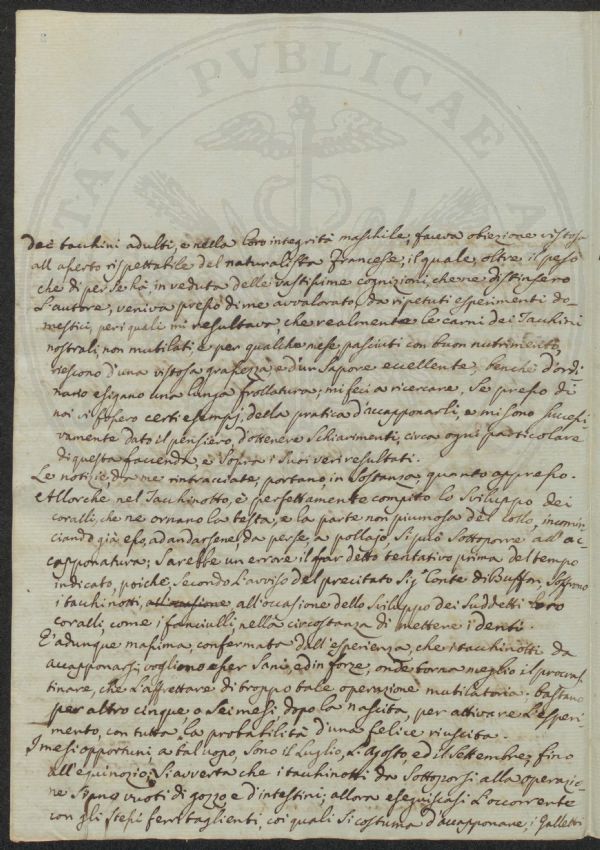 TATI PVBLICAE
dei tacchini adulti, e nella loro integrità maschile, faceva obiezione vistosa
all' aserto rispettabile del naturalista Francese, il quale, oltre il peso
che di per se hà, in veduta delle vastissime cognizioni, che ne distinsero
l'autore, veniva presso di me avvalorato da ripetuti esperimenti do-
mestici, per i quali mi resultava, che realmente le carni dei Tacchini
nostrali, non mutilati, e per qualche mese pasciuti con buon nutrimento,
riescono d'una vistosa grassezza e d'un sapore eccellente, benchè d'ordi-
nario esigano una lunga frollatura; mi feci a ricercare, se presso di
noi si fossero certi esempj, della pratica d'accapponarli, e mi sono successi-
vamente dato il pensiero, d'ottenere schiarimenti, circa ogni particolare
di questa faccenda, e sopra i suoi veri resultati.
Le notizie, da me rintracciate, portano, in sostanza, quanto appresso.
Allorchè nel Tacchinotto, è perfettamente compito lo sviluppo dei
coralli, che ne ornano la testa, e la parte non piumosa del collo, incomin-
ciando già, esso, ad andarsene, da per se, a pollajo, si può sottoporre all' ac-
capponatura; sarebbe un errore il far detto tentativo prima del tempo
indicato, poichè, secondo l'avviso del precitato Sig.r Conte di Buffon, soffrono
i tacchinotti, all' occasione dello sviluppo dei suddetti loro
coralli, come i fanciulli, nella circostanza di mettere i denti.
E' adunque massima, confermata dall' esperienza, che i tacchinotti da
accapponarsi, vogliono esser sani, ed in forze, onde torna meglio il procras-
tinare, che l'affrettare di troppo tale operazione mutilatoria; bastano
per altro cinque o sei mesi dopo la nascita, per attivare l'esperi-
mento, con tutta la probabilità d'una felice riuscita.
I mesi opportuni, a tal uopo, sono il Luglio, l'Agosto, ed il Settembre fino
all' equinozio; si avverta che i tacchinotti da sottoporsi alla operazio-
ne siano vuoti di gozzo e d'intestini; allora eseguiscasi l'occorrente
con gli stessi ferri taglienti, coi quali si costuma d'accapponare, i Galletti